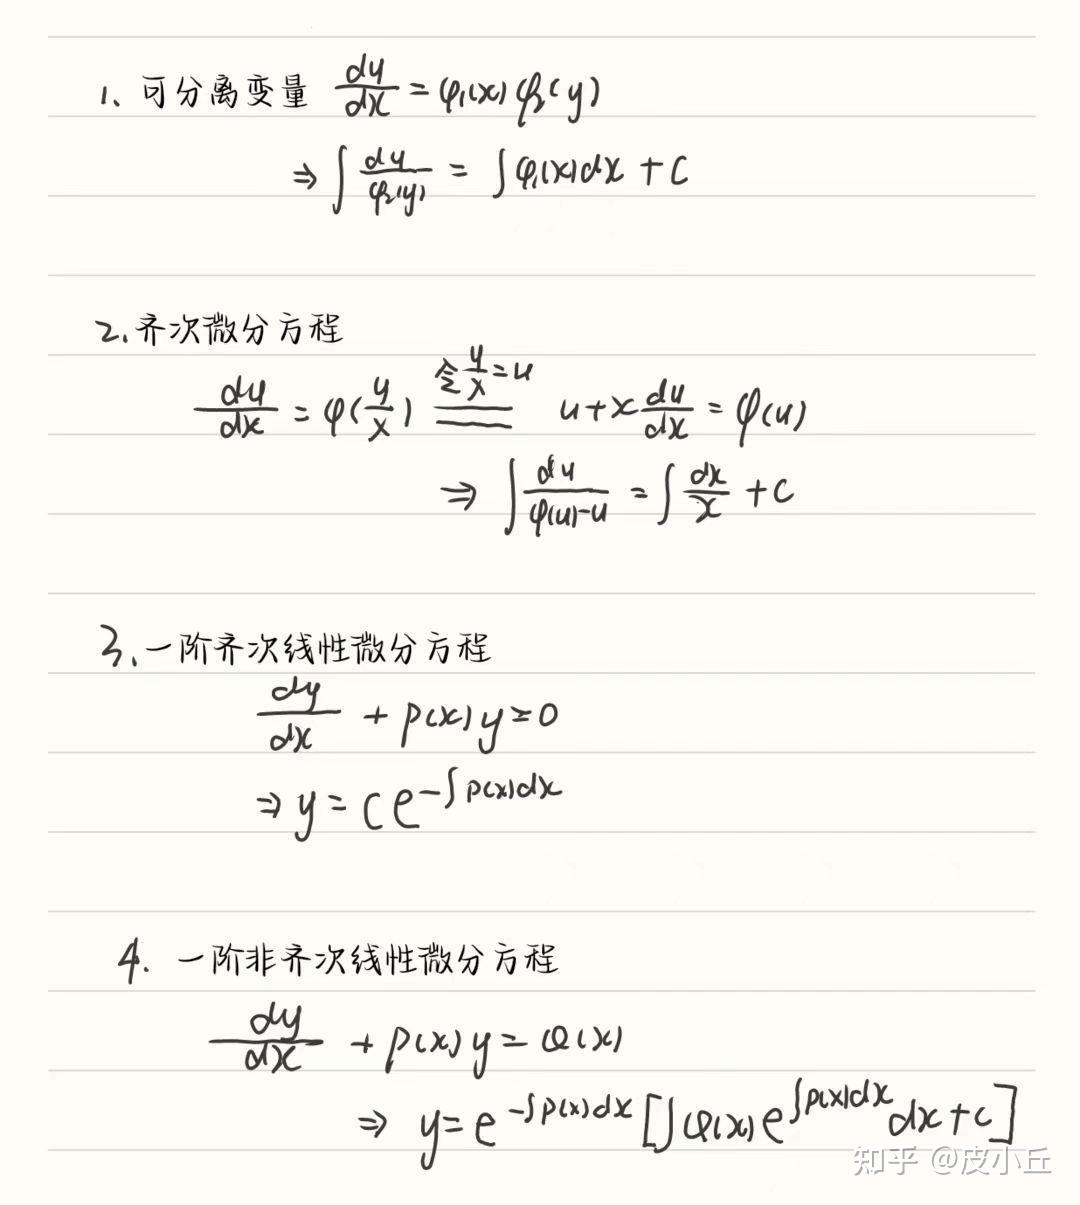 1、可分离变量 dy/dx = φ₁(x) φ₂(y)
⇒ ∫ dy/φ₂(y) = ∫ φ₁(x)dx + C
2.齐次微分方程
dy/dx = φ(y/x) 令y/x=u u+x du/dx = φ(u)
⇒ ∫ du/(φ(u)-u) = ∫ dx/x + C
3.一阶齐次线性微分方程
dy/dx + P(x)y=0
⇒ y = Ce^(-∫P(x)dx)
4. 一阶非齐次线性微分方程
dy/dx + P(x)y = Q(x)
⇒ y=e^(-∫P(x)dx) [∫φ(x)e^(∫P(x)dx) dx+C]
知乎 @皮小丘